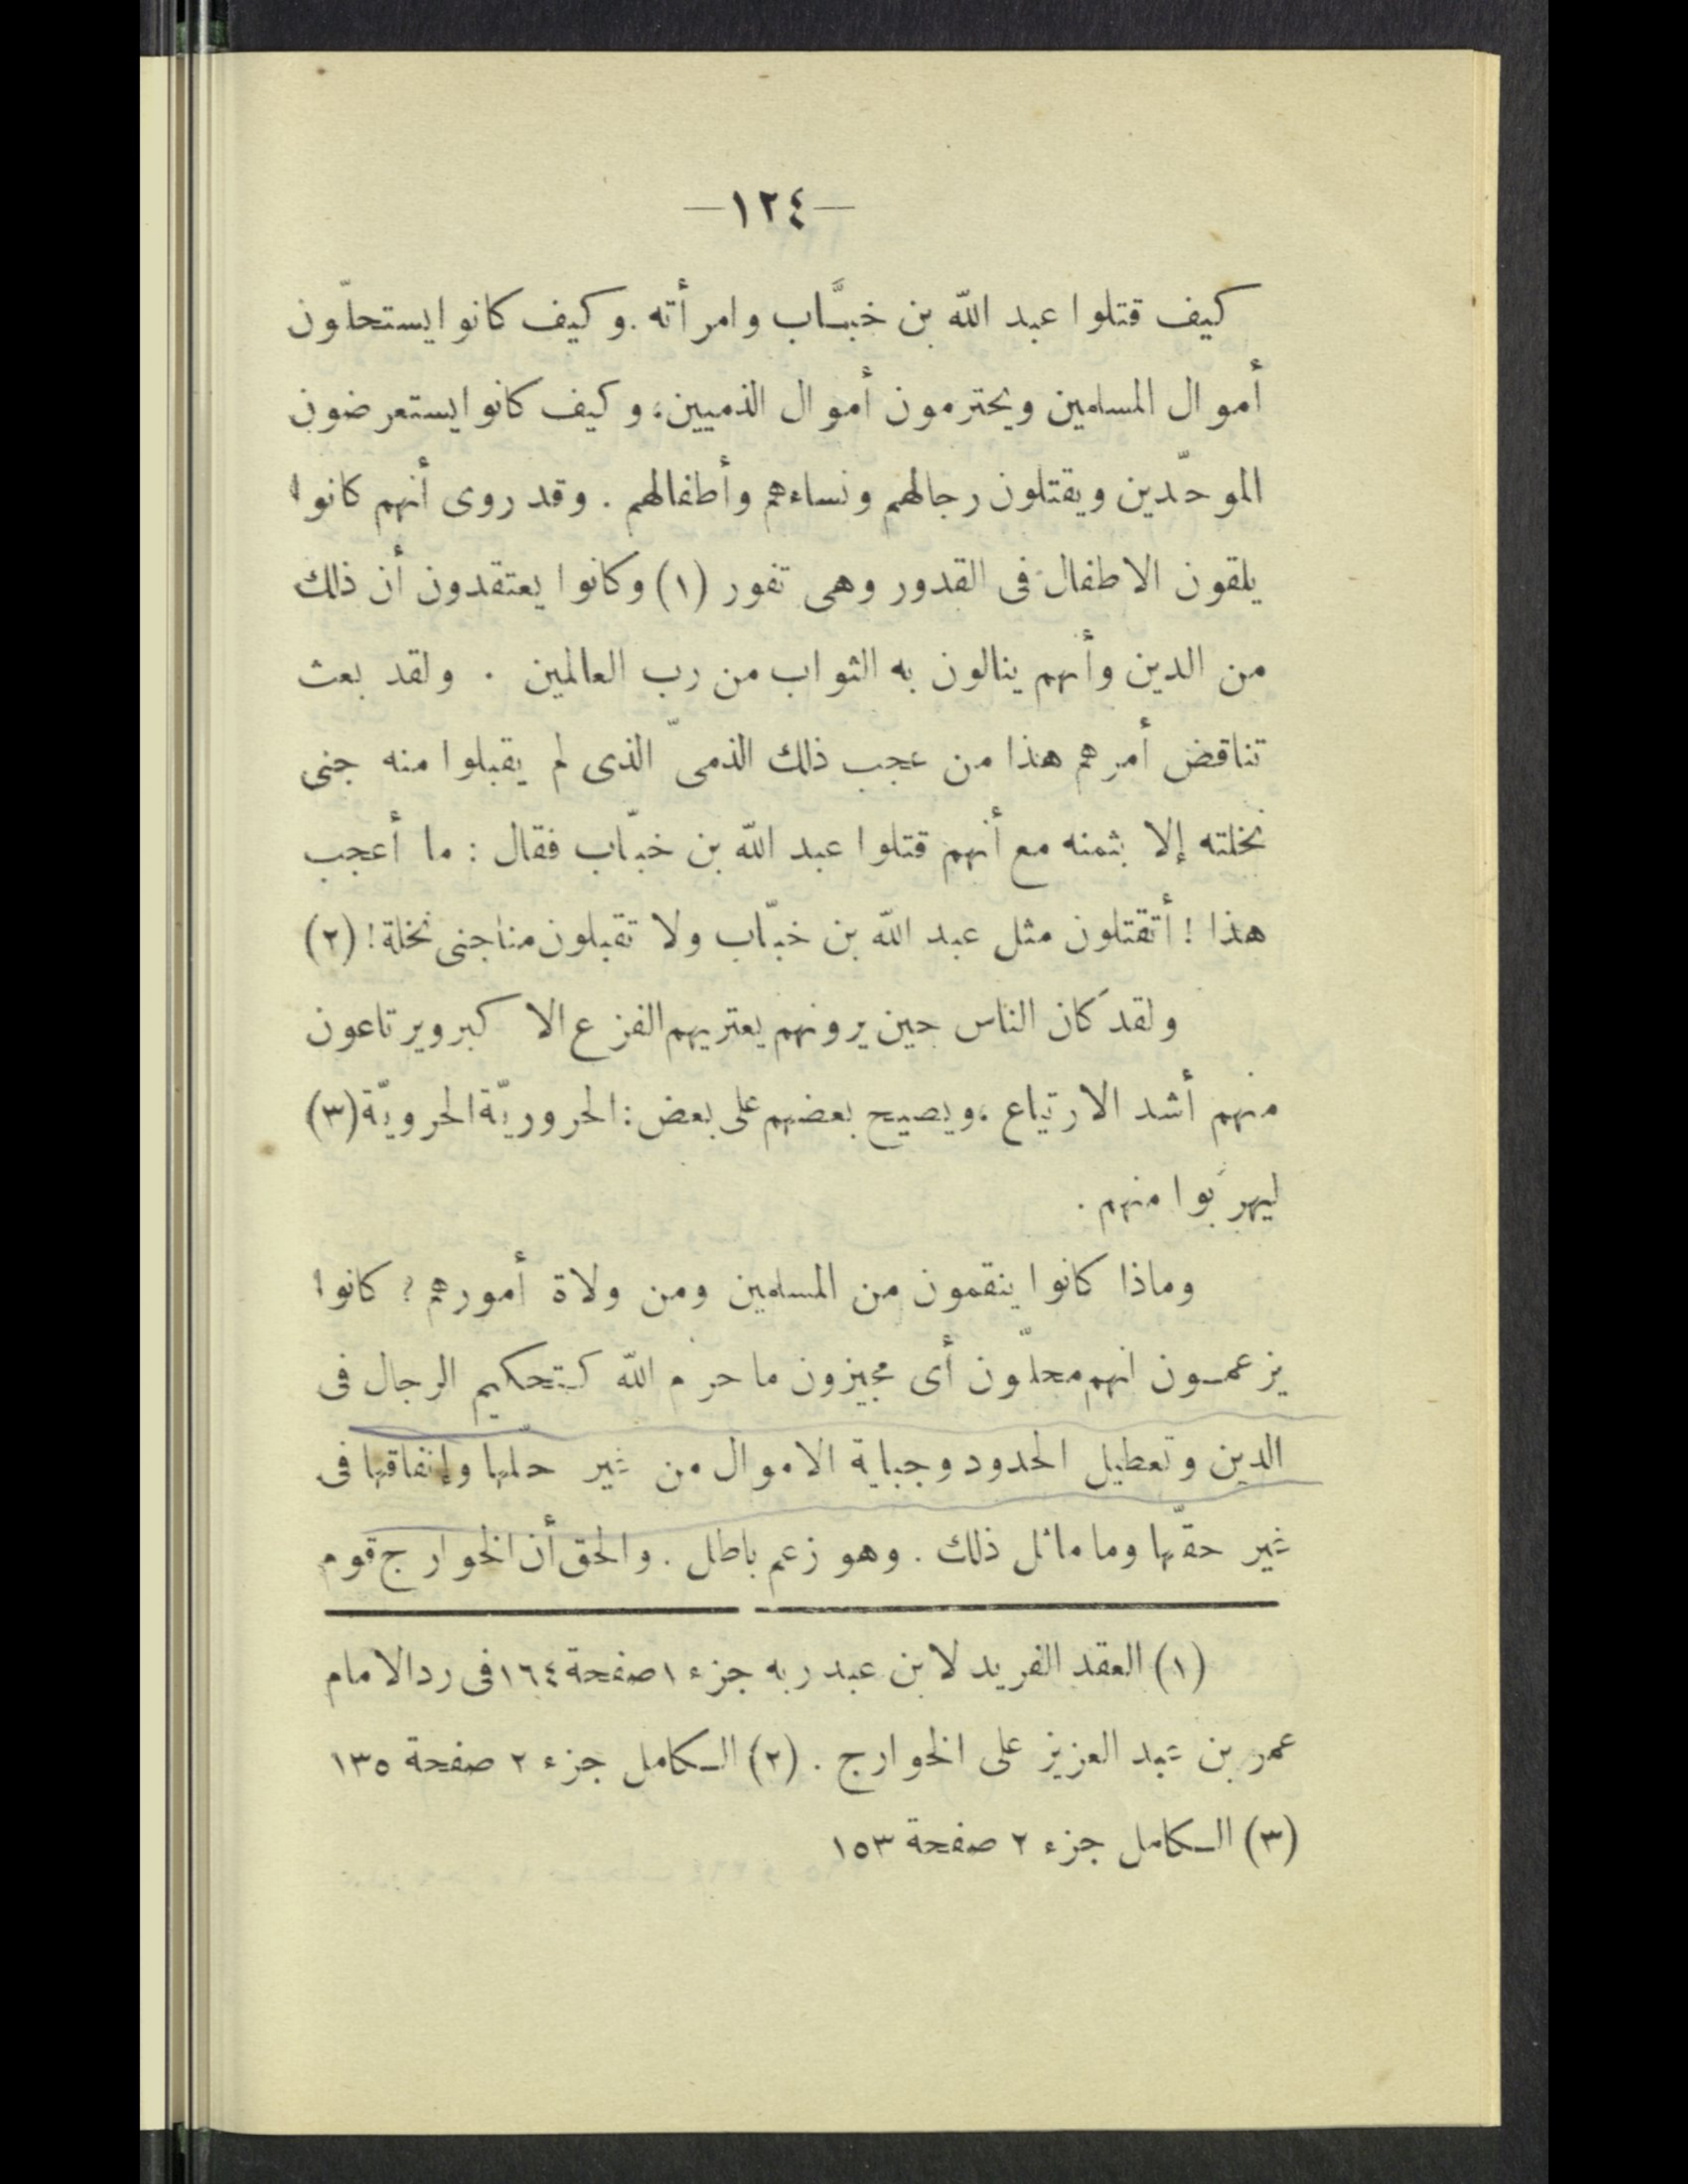 —١٢٤—
كيف قتلوا عبد الله بن خبَّاب وامرأته . وكيف كانوا يستحلّون
أموال المسلمين ويحترمون أموال الذميين، وكيف كانوا يستعرضون
الموحّدين ويقتلون رجالهم ونساءهم وأطفالهم . وقد روى أنهم كانوا
يلقون الاطفال فى القدور وهى تفور (١) وكانوا يعتقدون أن ذلك
من الدين وأنهم ينالون به الثواب من رب العالمين . ولقد بعث
تناقض أمرهم هذا من عجب ذلك الذمىّ الذى لم يقبلوا منه جنى
نخلته إلا بثمنه مع أنهم قتلوا عبد الله بن خبّاب فقال : ما أعجب
هذا ! أتقتلون مثل عبد الله بن خبّاب ولا تقبلون منا جنى نخلة ! (٢)
ولقد كان الناس حين يرونهم يعتريهم الفزع الاكبر ويرتاعون
منهم أشد الارتياع ، ويصيح بعضهم على بعض : الحروريّة الحرويّة (٣)
ليهربوا منهم .
وماذا كانوا ينقمون من المسلمين ومن ولاة أمورهم ؟ كانوا
يزعمون انهم محلّون أى مجيزون ما حرم الله كتحكيم الرجال فى
الدين وتعطيل الحدود وجباية الاموال من غير حلّها وإنفاقها فى
غير حقّها وما ماثل ذلك . وهو زعم باطل . والحق أن الخوارج قوم
(١) العقد الفريد لابن عبد ربه جزء ١ صفحة ١٦٤ فى رد الامام
عمر بن عبد العزيز على الخوارج . (٢) الكامل جزء ٢ صفحة ١٣٥
(٣) الكامل جزء ٢ صفحة ١٥٣